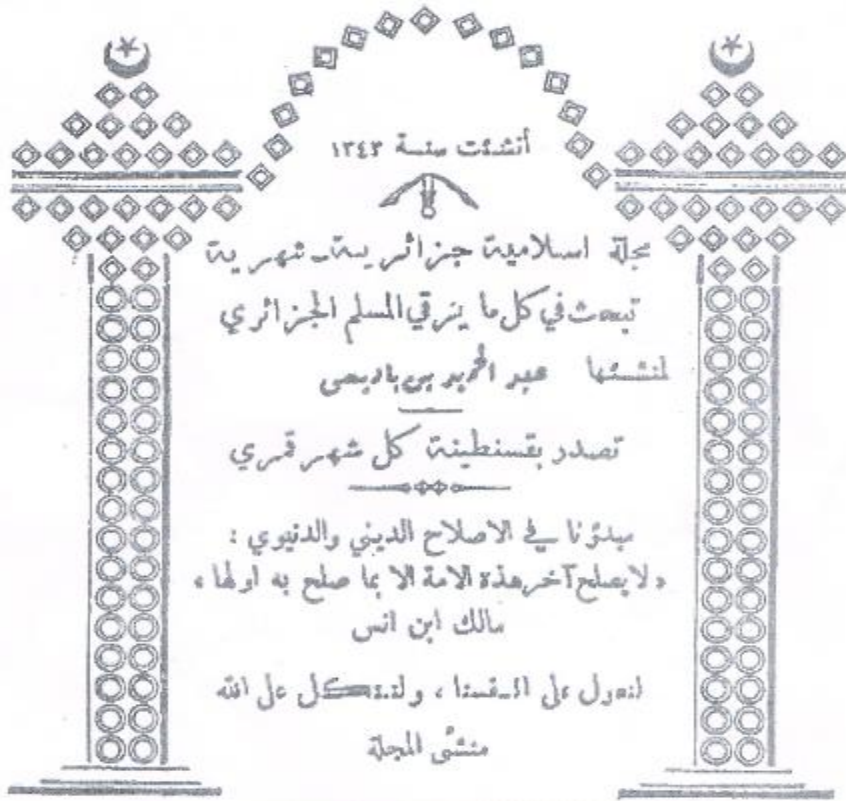 أنشئت سنة ١٣٤٣
مجلة اسلامية جزائرية ـ شهرية
تبحث في كل ما يرقي المسلم الجزائري
لمنشئها عبد الحميد بن باديس
تصدر بقسنطينة كل شهر قمري
مبدؤنا في الاصلاح الديني والدنيوي :
« لا يصلح آخر هذه الامة الا بما صلح به اولها »
مالك ابن انس
لنعول على انفسنا ، ولنتكل على الله
منشئ المجلة